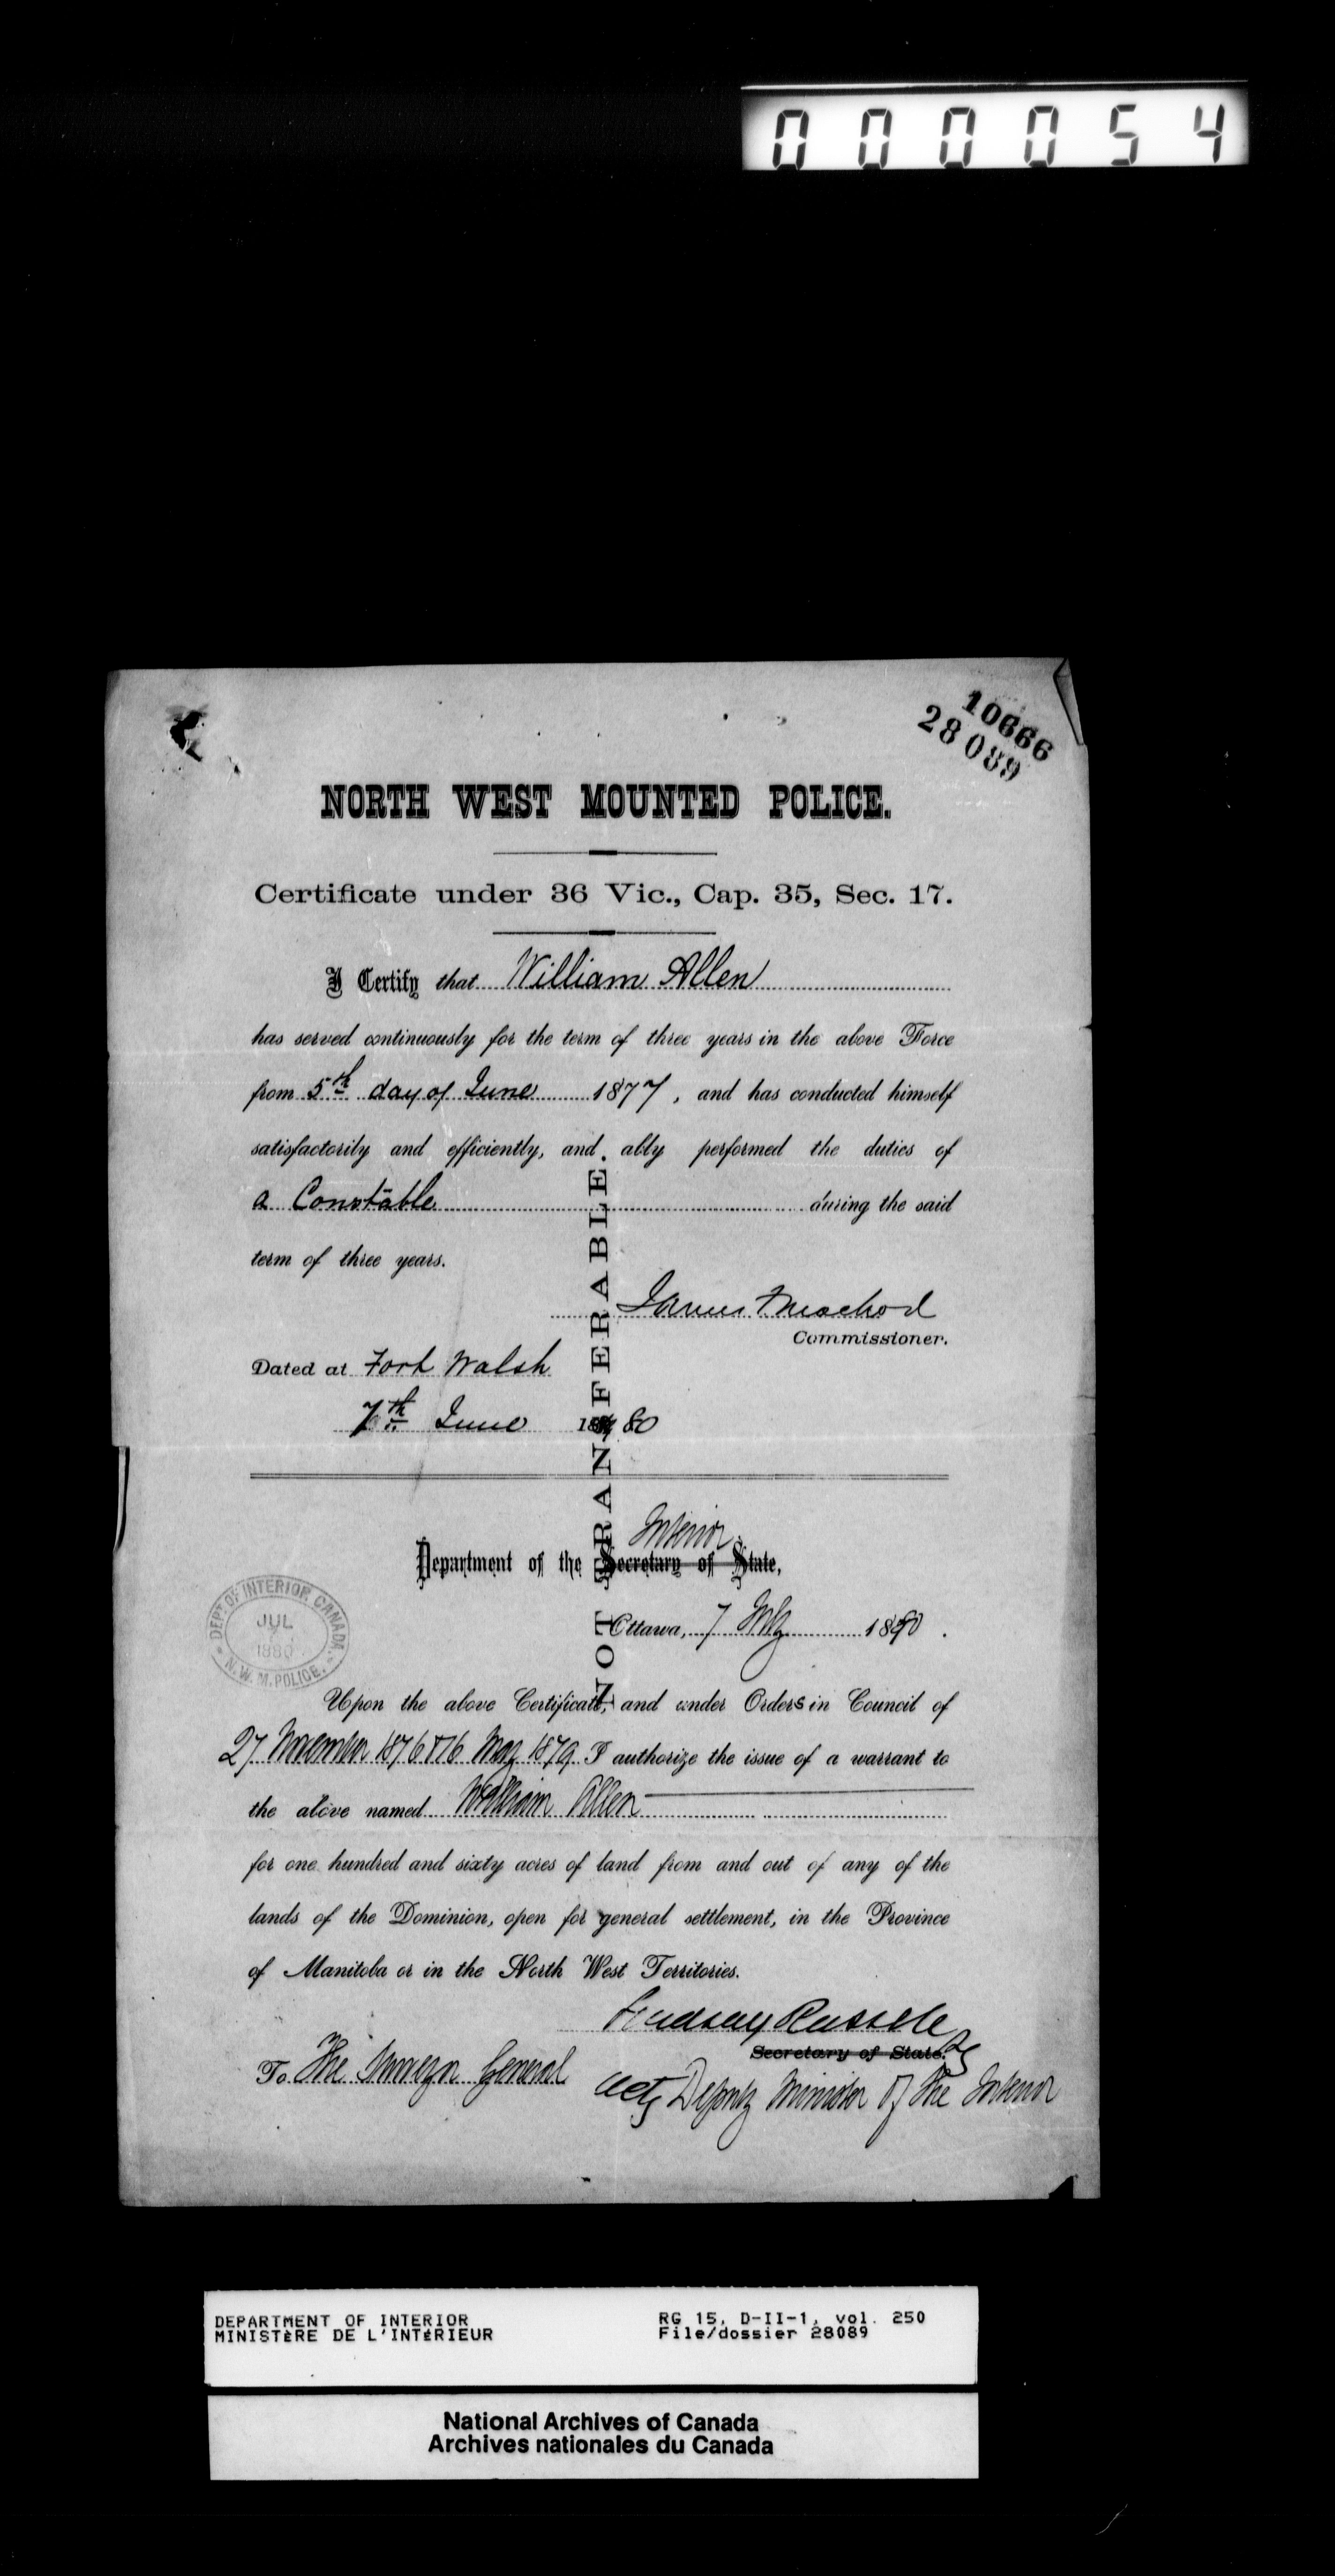 000054
10666
28089
NORTH WEST MOUNTED POLICE.
Certificate under 36 Vic., Cap. 35, Sec. 17.
I Certify that William Allen
has served continuously for the term of three years in the above Force
from 5th day of June 1877, and has conducted himself
satisfactorily and efficiently, and ably performed the duties of
a Constable during the said
term of three years.
James F Macleod
Commissioner.
Dated at Fort Walsh
7th June 1880
NOT TRANSFERABLE.
Interior
Department of the Secretary of State,
Ottawa, 7 July 1880.
DEPT. OF INTERIOR CANADA.
JUL
7
1880
N. W. M. POLICE.
Upon the above Certificate, and under Orders in Council of
27 November 1876 & 16 May 1879 I authorize the issue of a warrant to
the above named William Allen
for one hundred and sixty acres of land from and out of any of the
lands of the Dominion, open for general settlement, in the Province
of Manitoba or in the North West Territories.
Lindsay Russell
Secretary of State.
To The Surveyor General
Actg Deputy Minister of the Interior
DEPARTMENT OF INTERIOR
MINISTÈRE DE L'INTÉRIEUR
RG 15, D-II-1, vol. 250
File/dossier 28089
National Archives of Canada
Archives nationales du Canada